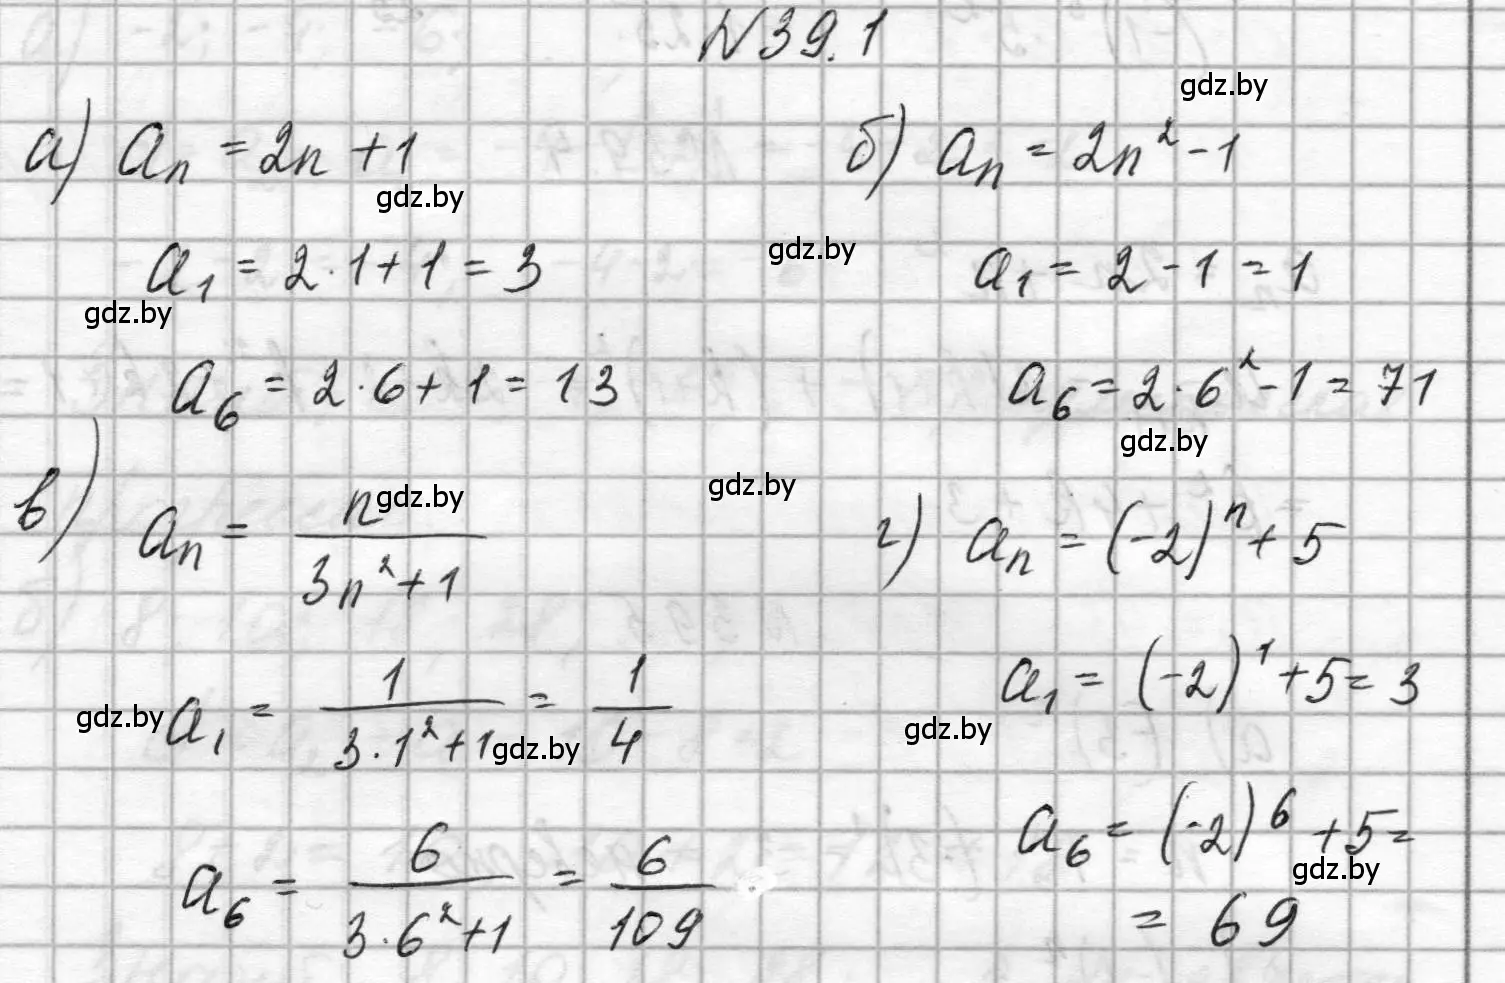 N39.1
gdz.by
а) aₙ = 2n + 1
gdz.by
a₁ = 2·1 + 1 = 3
gdz.by
a₆ = 2·6 + 1 = 13
б) aₙ = 2n² - 1
gdz.by
a₁ = 2 - 1 = 1
a₆ = 2·6² - 1 = 71
gdz.by
в) aₙ = n / (3n² + 1)
gdz.by
gdz.by
a₁ = 1 / (3·1² + 1) = 1/4
gdz.by
gdz.by
a₆ = 6 / (3·6² + 1) = 6/109
г) aₙ = (-2)ⁿ + 5
a₁ = (-2)¹ + 5 = 3
gdz.by
a₆ = (-2)⁶ + 5 =
gdz.by
= 69